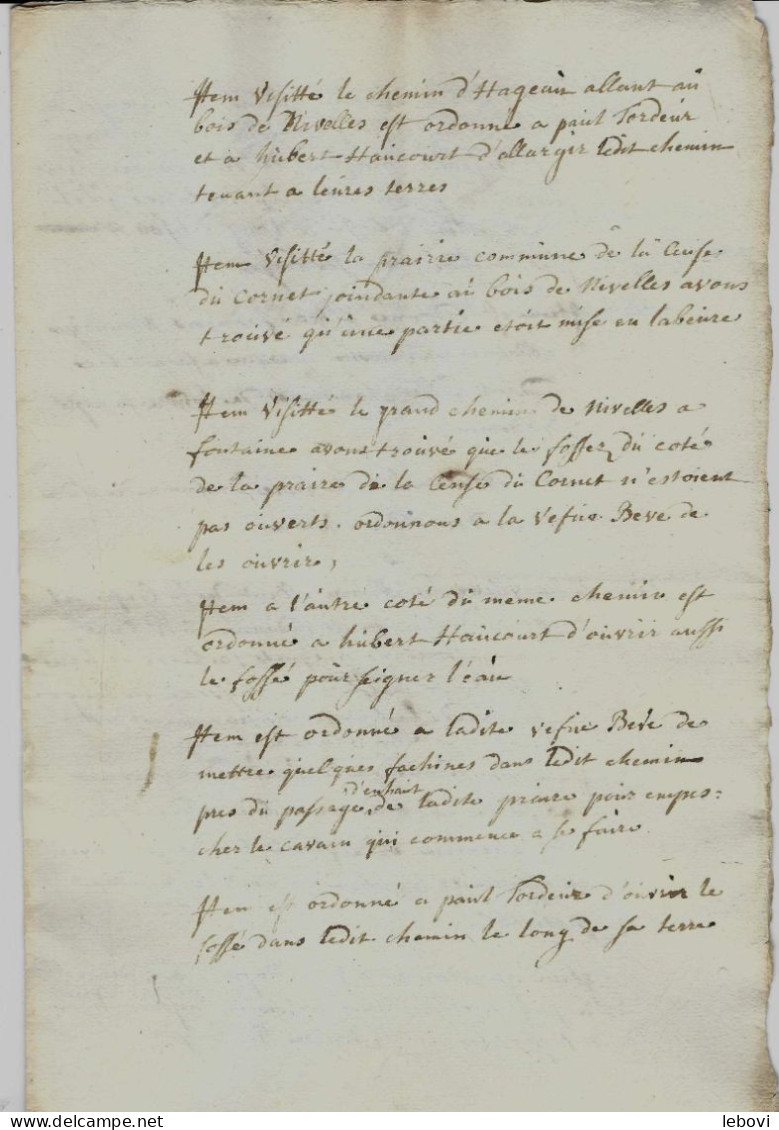 Item visitté le chemin d'Hageau allant au
bois de Nivelles est ordonné a paul Tordeur
et a hubert Haucourt d'allargir ledit chemin
tenant a leures terres
Item visitté la prairie commune de la Cense
du Cornet joindante au bois de Nivelles avons
trouvé qu'une partie etoit mise en labeure
Item visitté le grand chemin de Nivelles a
fontaine avons trouvé que le fossez du coté
de la praire de la Cense du Cornet n'estoient
pas ouverts. ordonnons a la vefue Beve de
les ouvrir,
Item a l'autre coté du meme chemin est
ordonné a hubert Haucourt d'ouvrir aussi
le fossé pour seigner l'eau
Item est ordonné a ladite vefue Beve de
mettre quelques fachines dans ledit chemin
d'enhaut
pres du passage de ladite priere pour empes=
cher le cavain qui commence a se faire
Item est ordonné a paul Tordeur d'ouvrir le
fossé dans ledit chemin le long de sa terre
Delcampe.net
lebovi